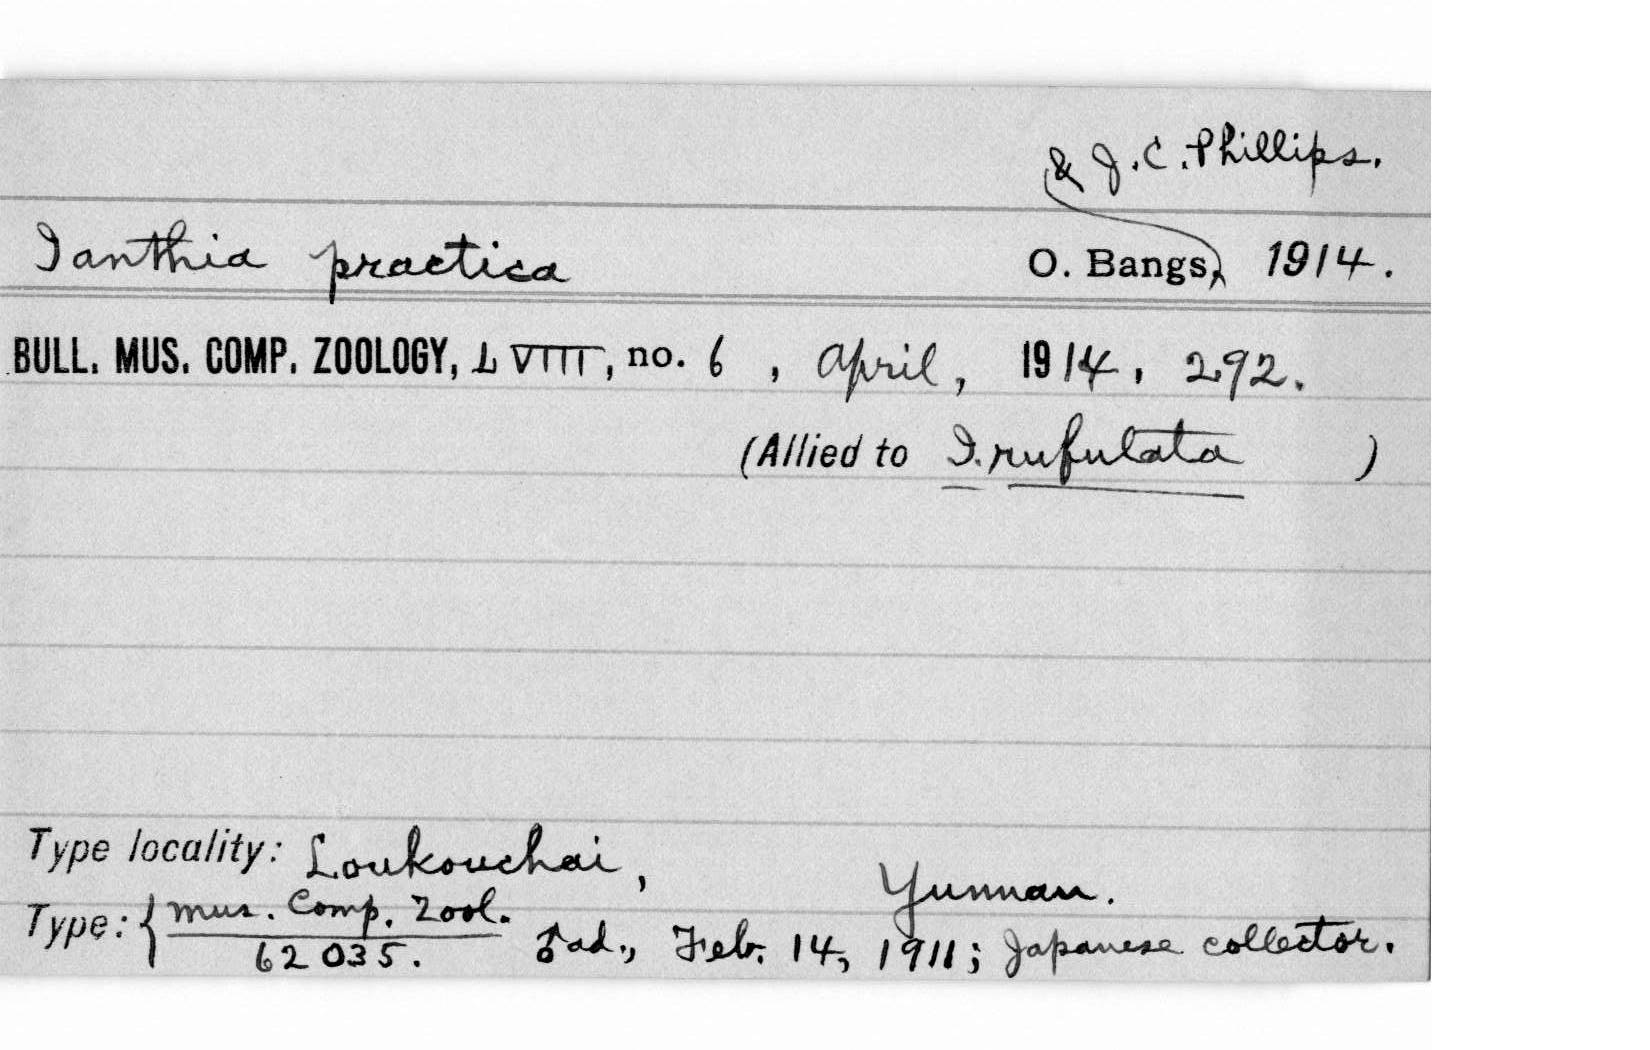 & J. C. Phillips.
Ianthia practica O. Bangs, 1914.
BULL. MUS. COMP. ZOOLOGY, LVIII, no. 6, April, 1914, 292.
(Allied to I. rufulata )
Type locality: Loukouchai, Yunnan.
Type: { Mus. Comp. Zool.
62035. ♂ad., Feb. 14, 1911; Japanese collector.